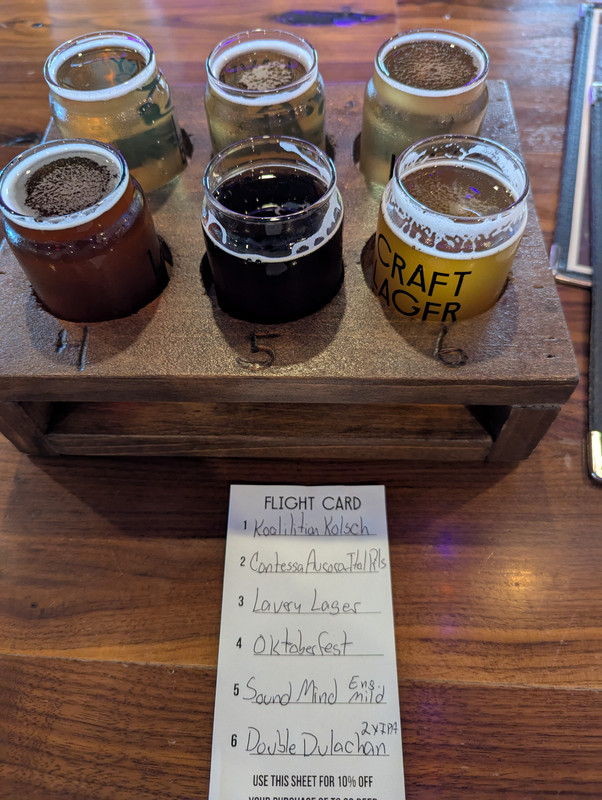 CRAFT
LAGER
4
5
6
FLIGHT CARD
1 Koalilitian Kolsch
2 Contessa Aucosa Ital Pils
3 Lavery Lager
4 Oktoberfest
5 Sound Mind Eng. mild
6 Double Dulachan 2xIPA
USE THIS SHEET FOR 10% OFF